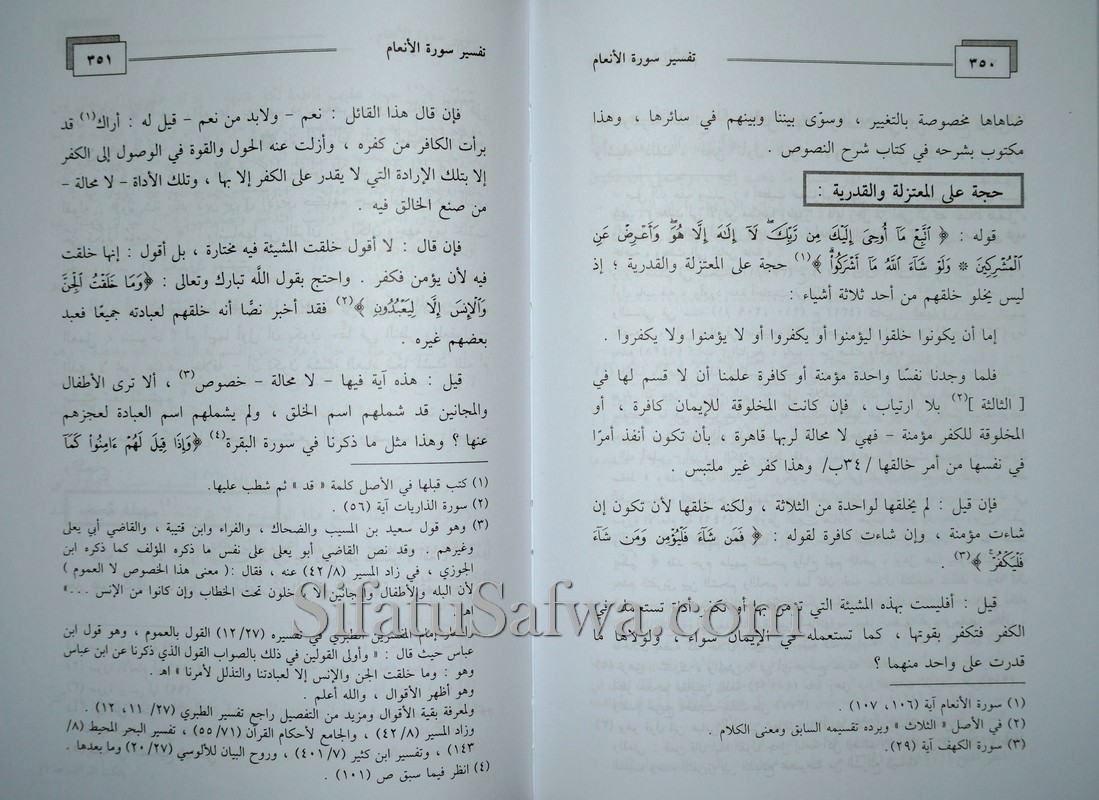 تفسير سورة الأنعام
٣٥٠
ضاهاها مخصوصة بالتغيير ، وسوّى بيننا وبينهم في سائرها ، وهذا
مكتوب بشرحه في كتاب شرح النصوص .
حجة على المعتزلة والقدرية :
قوله : ﴿ ٱتَّبِعْ مَآ أُوحِىَ إِلَيْكَ مِن رَّبِّكَ ۖ لَآ إِلَٰهَ إِلَّا هُوَ ۖ وَأَعْرِضْ عَنِ
ٱلْمُشْرِكِينَ ۞ وَلَوْ شَآءَ ٱللَّهُ مَآ أَشْرَكُوا۟ ۗ ﴾(١) حجة على المعتزلة والقدرية ؛ إذ
ليس يخلو خلقهم من أحد ثلاثة أشياء :
إما أن يكونوا خلقوا ليؤمنوا أو يكفروا أو لا يؤمنوا ولا يكفروا .
فلما وجدنا نفسًا واحدة مؤمنة أو كافرة علمنا أن لا قسم لها في
[ الثالثة ](٢) بلا ارتياب ، فإن كانت المخلوقة للإيمان كافرة ، أو
المخلوقة للكفر مؤمنة - فهي لا محالة لربها قاهرة ، بأن تكون أنفذ أمرًا
في نفسها من أمر خالقها /٣٤ب/ وهذا كفر غير ملتبس .
فإن قيل : لم يخلقها لواحدة من الثلاثة ، ولكنه خلقها لأن تكون إن
شاءت مؤمنة ، وإن شاءت كافرة لقوله : ﴿ فَمَن شَآءَ فَلْيُؤْمِن وَمَن شَآءَ
فَلْيَكْفُرْ ۚ ﴾(٣) .
قيل : أفليست بهذه المشيئة التي تزعم بها أو تكفر دأتم تستعمله في
الكفر فتكفر بقوتها ، كما تستعمله في الإيمان سواء ، ولولاها ما
قدرت على واحد منهما ؟
(١) سورة الأنعام آية (١٠٦ ، ١٠٧) .
(٢) في الأصل « الثلاث » ويرده تقسيمه السابق ومعنى الكلام .
(٣) سورة الكهف آية (٢٩).
تفسير سورة الأنعام
٣٥١
فإن قال هذا القائل : نعم - ولابد من نعم - قيل له : أراك(١) قد
برأت الكافر من كفره ، وأزلت عنه الحول والقوة في الوصول إلى الكفر
إلا بتلك الإرادة التي لا يقدر على الكفر إلا بها ، وتلك الأداة - لا محالة -
من صنع الخالق فيه .
فإن قال : لا أقول خلقت المشيئة فيه مختارة ، بل أقول : إنها خلقت
فيه لأن يؤمن فكفر . واحتج بقول اللَّه تبارك وتعالى : ﴿وَمَا خَلَقْتُ ٱلْجِنَّ
وَٱلْإِنسَ إِلَّا لِيَعْبُدُونِ ﴾(٢) فقد أخبر نصًّا أنه خلقهم لعبادته جميعًا فعبد
بعضهم غيره .
قيل : هذه آية فيها - لا محالة - خصوص(٣) ، ألا ترى الأطفال
والمجانين قد شملهم اسم الخلق ، ولم يشملهم اسم العبادة لعجزهم
عنها ؟ وهذا مثل ما ذكرنا في سورة البقرة(٤) ﴿وَإِذَا قِيلَ لَهُمْ ءَامِنُوا۟ كَمَآ
(١) كتب قبلها في الأصل كلمة « قد » ثم شطب عليها.
(٢) سورة الذاريات آية (٥٦) .
(٣) وهو قول سعيد بن المسيب والضحاك ، والفراء وابن قتيبة ، والقاضي أبي يعلى
وغيرهم . وقد نص القاضي أبو يعلى على نفس ما ذكره المؤلف كما ذكره ابن
الجوزي ، في زاد المسير (٤٢/٨) عنه ، فقال : ( معنى هذا الخصوص لا العموم )
لأن البله والأطفال والمجانين لا يدخلون تحت الخطاب وإن كانوا من الإنس ...»
اهـ
إمام المفسرين الطبري في تفسيره (١٢/٢٧) القول بالعموم ، وهو قول ابن
عباس حيث قال : « وأولى القولين في ذلك بالصواب القول الذي ذكرنا عن ابن عباس
وهو : وما خلقت الجن والإنس إلا لعبادتنا والتذلل لأمرنا » اهـ .
وهو أظهر الأقوال ، والله أعلم .
ولمعرفة بقية الأقوال ومزيد من التفصيل راجع تفسير الطبري (٢٧/ ١١، ١٢) .
وزاد المسير (٤٢/٨) ، والجامع لأحكام القرآن (٥٥/٧١) ، تفسير البحر المحيط (٨/
١٤٣) ، وتفسير ابن كثير (٤٠١/٧) ، وروح البيان للألوسي (٢٠/٢٧) وما بعدها .
(٤) انظر فيما سبق ص (١٠١) .
SifatuSafwa.com